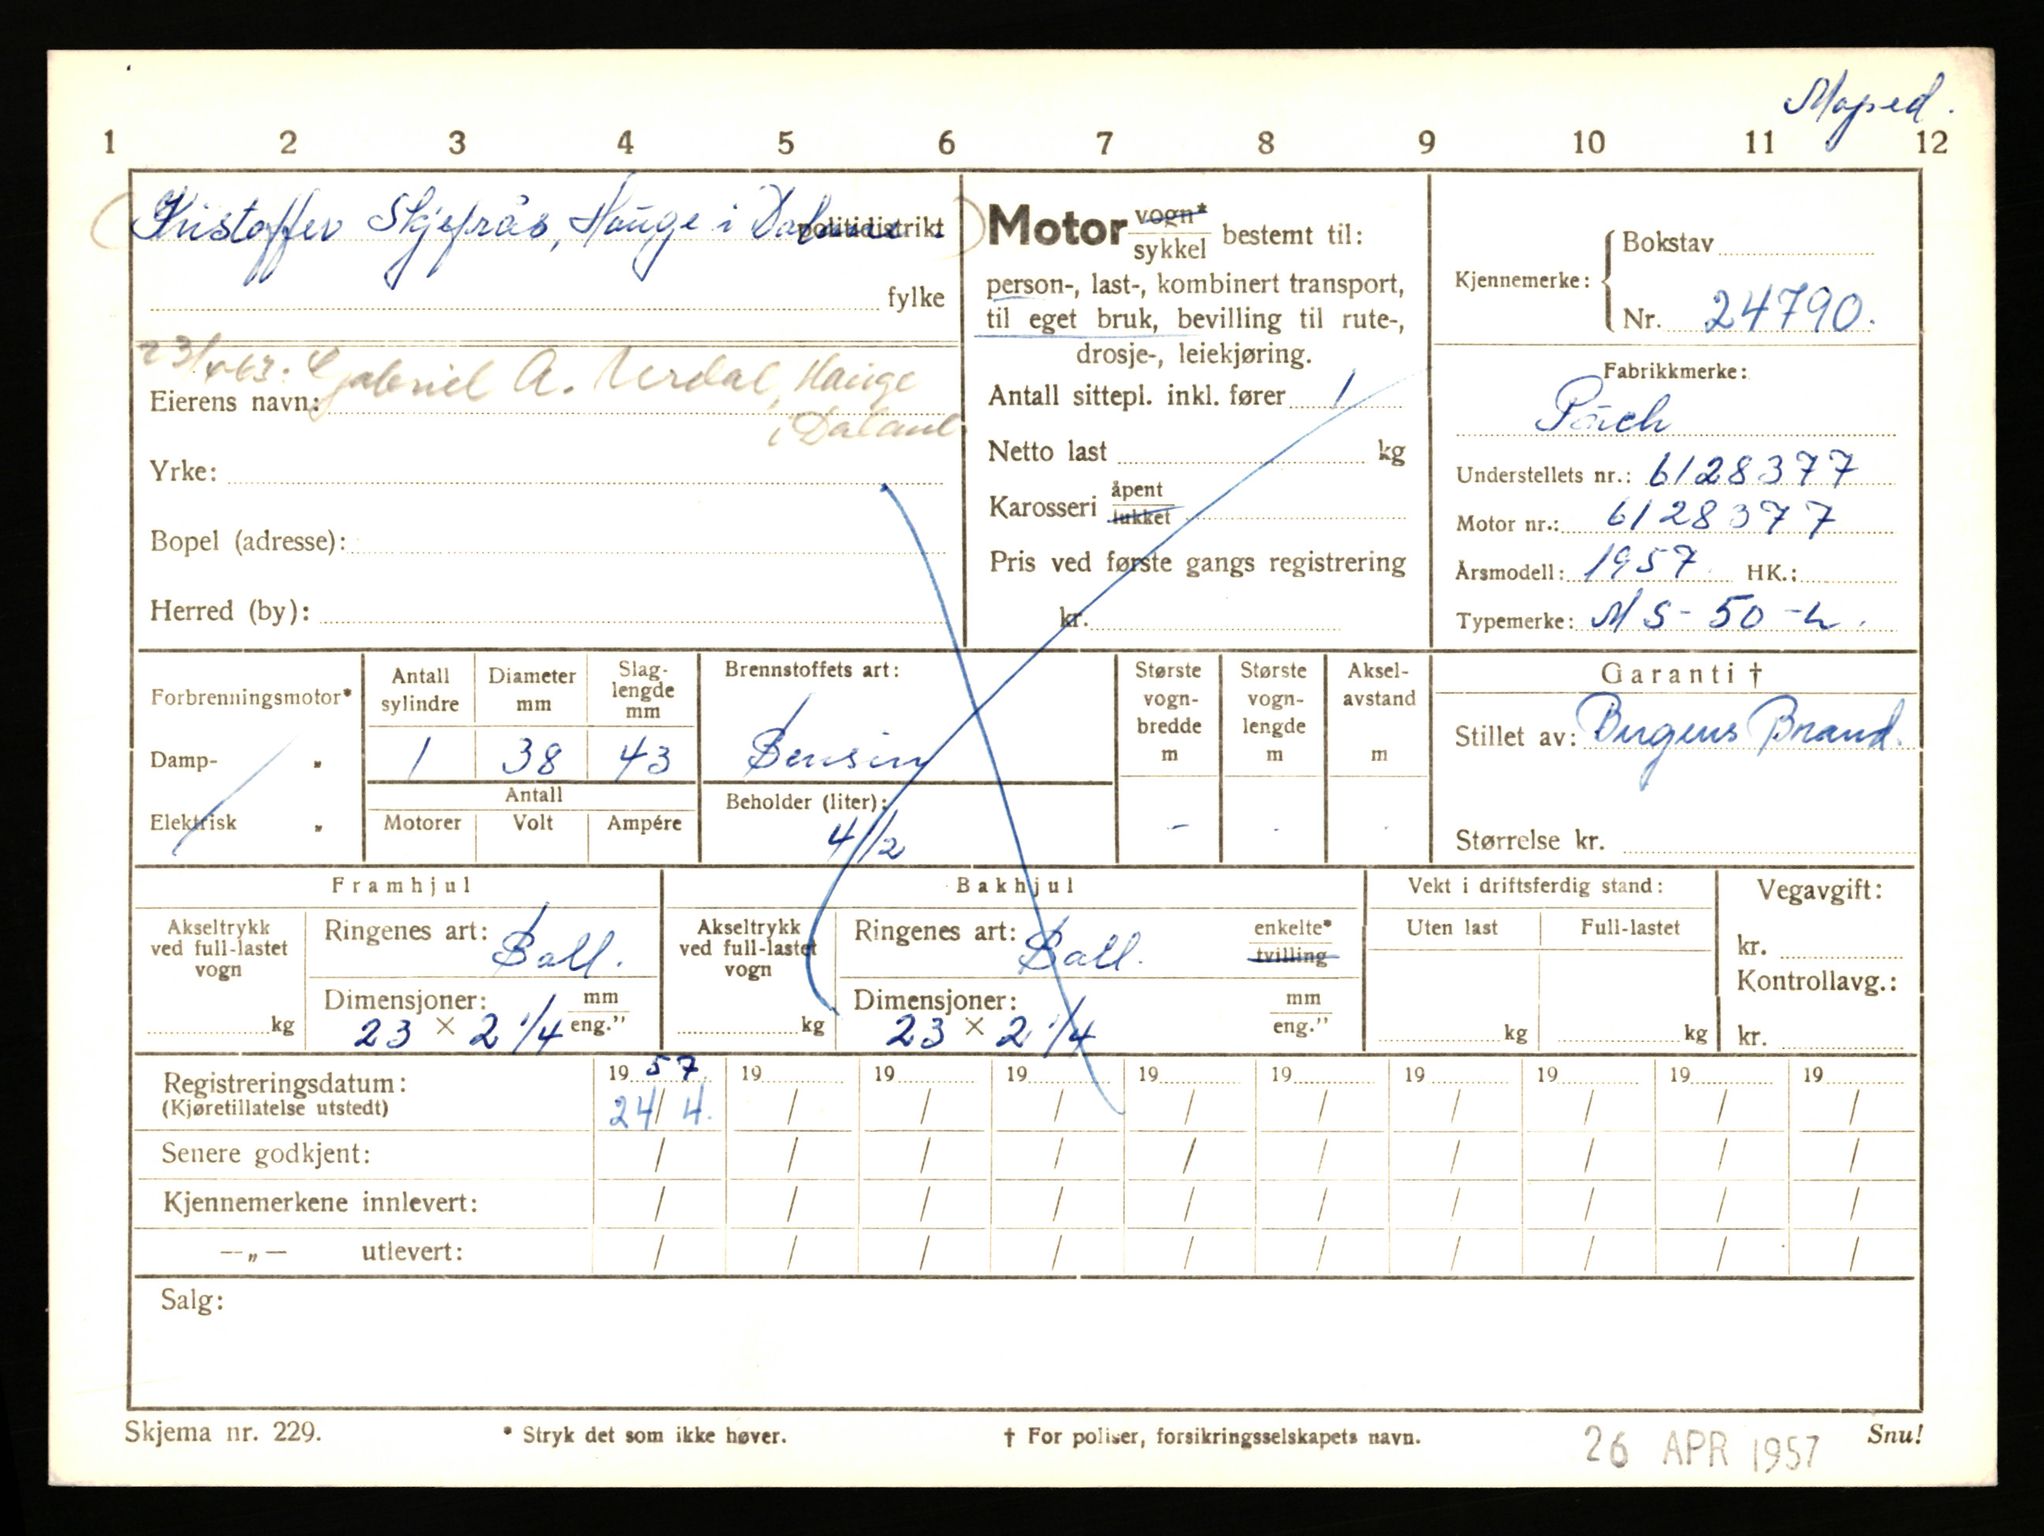 Moped.
1 2 3 4 5 6 7 8 9 10 11 12
Kristoffer Skjefrås, Hauge i Dalane politidistrikt
fylke
Gabriel A. Urdal, Hauge
Eierens navn:
i Daland
Yrke:
Bopel (adresse):
Herred (by):
Motor vogn*
sykkel bestemt til:
person-, last-, kombinert transport,
til eget bruk, bevilling til rute-,
drosje-, leiekjøring.
Antall sittepl. inkl. fører 1
Netto last kg
Karosseri åpent
lukket
Pris ved første gangs registrering
kr.
Kjennemerke: Bokstav
Nr. 24790.
Fabrikkmerke:
Püch
Understellets nr.: 6128377
Motor nr.: 6128377
Årsmodell: 1957 HK.:
Typemerke: MS-50-L.
Forbrenningsmotor*
Damp- „
Elektrisk „
Antall sylindre
1
Diameter mm
38
Slag-
lengde
mm
43
Antall
Motorer Volt Ampére
Brennstoffets art:
Bensin
Beholder (liter):
4 1/2
Største
vogn-
bredde
m
-
Største
vogn-
lengde
m
Aksel-
avstand
m
Garanti †
Stillet av: Bergens Brand.
Størrelse kr.
Framhjul
Akseltrykk
ved full-lastet
vogn
kg
Ringenes art: Ball.
Dimensjoner: mm
23 × 2 1/4 eng."
Bakhjul
Akseltrykk
ved full-lastet
vogn
kg
Ringenes art: Ball. enkelte*
tvilling
Dimensjoner: mm
23 × 2 1/4 eng."
Vekt i driftsferdig stand:
Uten last Full-lastet
kg kg
Vegavgift:
kr.
Kontrollavg.:
kr.
Registreringsdatum: 1957 19 19 19 19 19 19 19 19 19
(Kjøretillatelse utstedt) 24/4. / / / / / / / / /
Senere godkjent: / / / / / / / / / /
Kjennemerkene innlevert: / / / / / / / / / /
—„— utlevert: / / / / / / / / / /
Salg:
Skjema nr. 229. * Stryk det som ikke høver. † For poliser, forsikringsselskapets navn. 26 APR 1957 Snu!